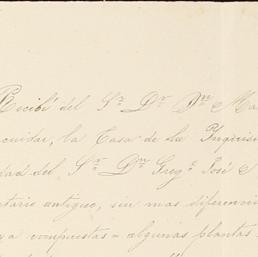 Recibí del Sr. Dr. Dn. Ma
cuidar, la Casa de la Inquisi
dad del Sr. Dn. Greg.o José
tario antiguo, sin mas diferencia
ya compuestas = algunas plantas